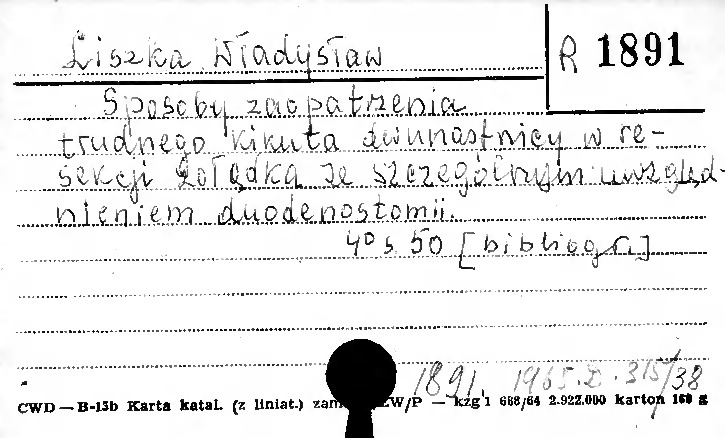 Liszka Władysław
R 1891
Sposoby zaopatrzenia
trudnego kikuta dwunastnicy w re-
sekcji żołądka ze szczególnym uwzględ-
nieniem duodenostomii.
4° s 50 [bibliogr.]
1891. 1965.D.315/38
CWD — B-15b Karta katal. (z liniat.) zam. ZW/P — kzg 1 668/64 2.922.000 karton 160 g